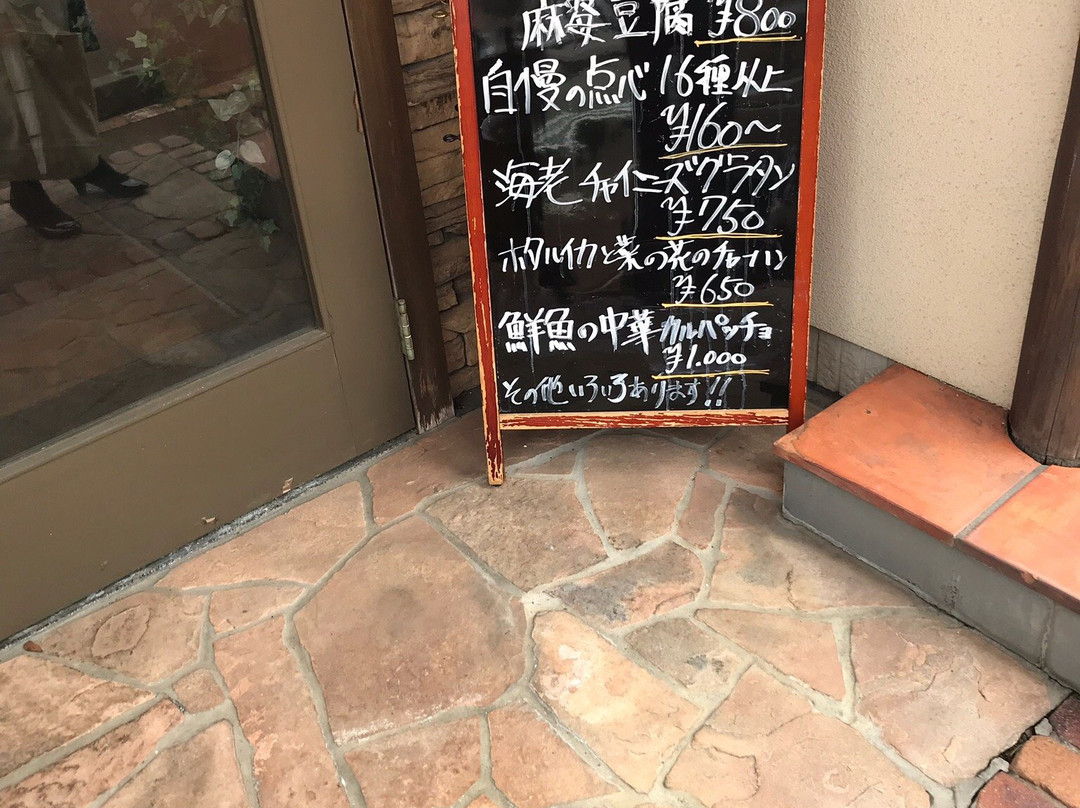 麻婆豆腐 ¥800
自慢の点心 16種以上
¥160〜
海老チャイニーズグラタン
¥750
ホタルイカと菜の花のチャーハン
¥650
鮮魚の中華カルパッチョ
¥1.000
その他いろいろあります!!